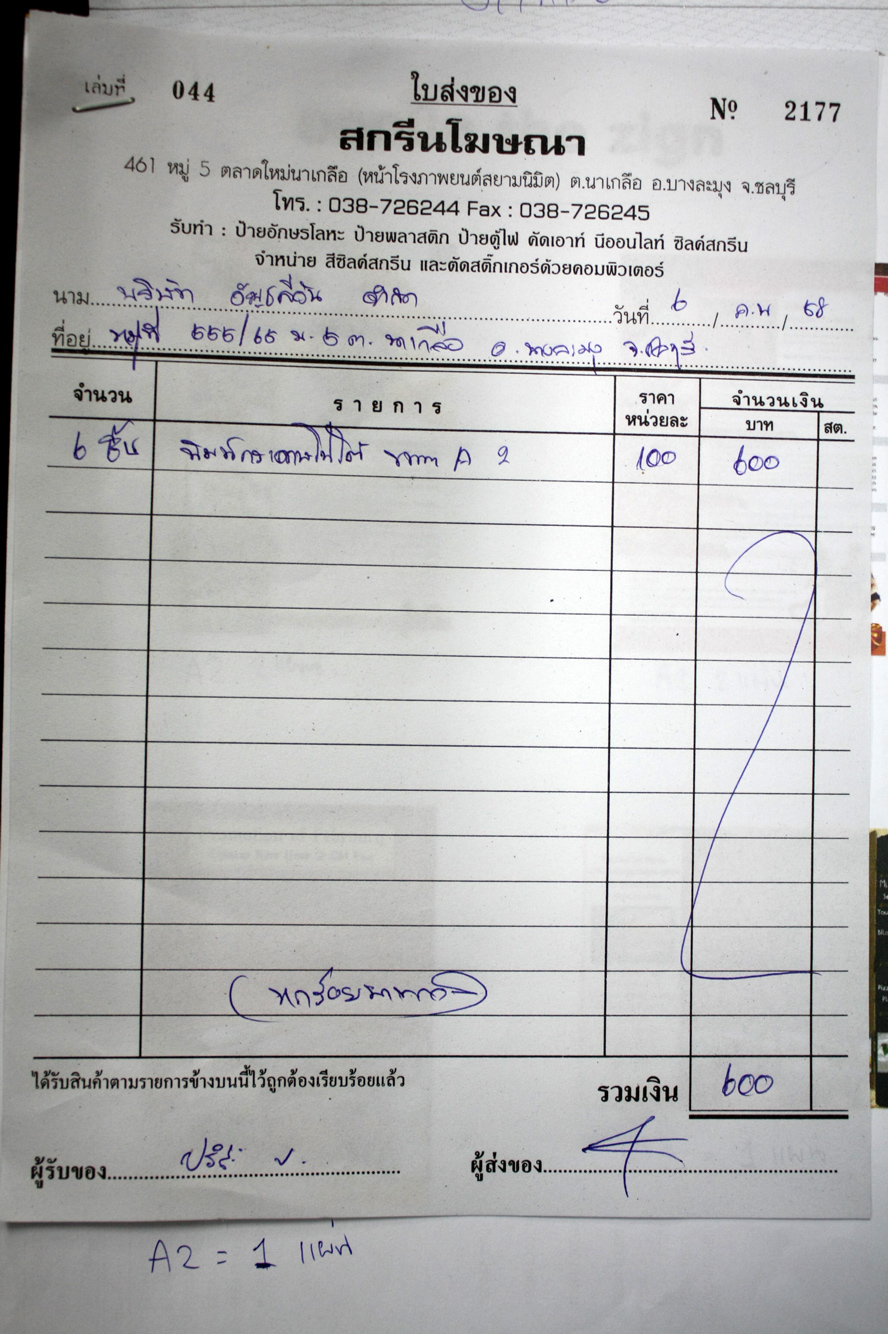 เล่มที่ 044
ใบส่งของ
Nº 2177
สกรีนโฆษณา
461 หมู่ 5 ตลาดใหม่นาเกลือ (หน้าโรงภาพยนต์สยามนิมิต) ต.นาเกลือ อ.บางละมุง จ.ชลบุรี
โทร. : 038-726244 Fax : 038-726245
รับทำ : ป้ายอักษรโลหะ ป้ายพลาสติก ป้ายตู้ไฟ คัดเอาท์ นีออนไลท์ ซิลค์สกรีน
จำหน่าย สีซิลค์สกรีน และตัดสติ๊กเกอร์ด้วยคอมพิวเตอร์
นาม บริษัท จำกัด วันที่ 6 / ค.พ / 58
ที่อยู่ 555/65 ม.5 ต. นาเกลือ อ. บางละมุง จ.ชลบุรี
จำนวน รายการ ราคาหน่วยละ จำนวนเงิน
บาท สต.
6 ชิ้น ขนาด A 2 100 600
(หกร้อยบาทถ้วน)
ได้รับสินค้าตามรายการข้างบนนี้ไว้ถูกต้องเรียบร้อยแล้ว
รวมเงิน 600
ผู้รับของ ผู้ส่งของ
A2 = 1 แผ่น